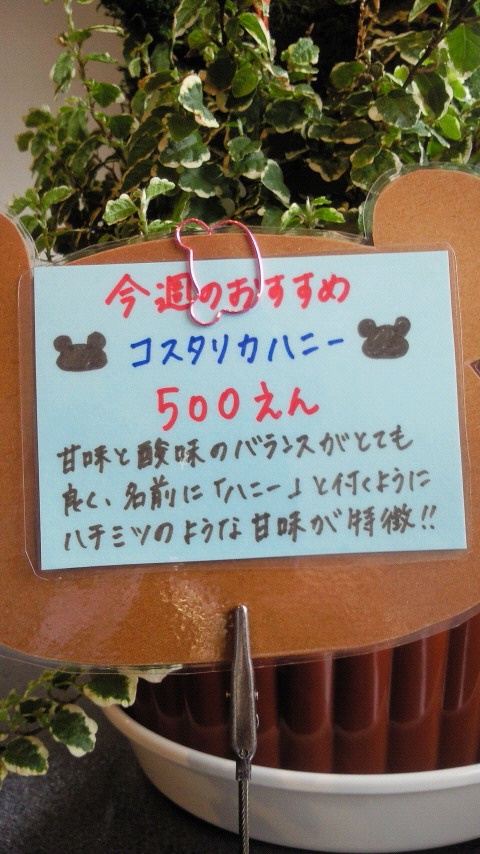 今週のおすすめ
コスタリカハニー
500えん
甘味と酸味のバランスがとても
良く、名前に「ハニー」と付くように
ハチミツのような甘味が特徴!!